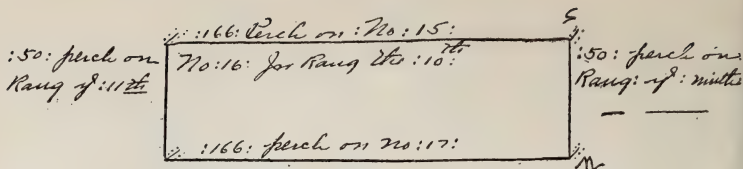 S
:166: Perch on : No: 15:
:50: perch on
Rang ye: 11th
No: 16: for Rang the :10:th
:50: perch on:
Rang: ye: ninth
:166: perch on no: 17:
N